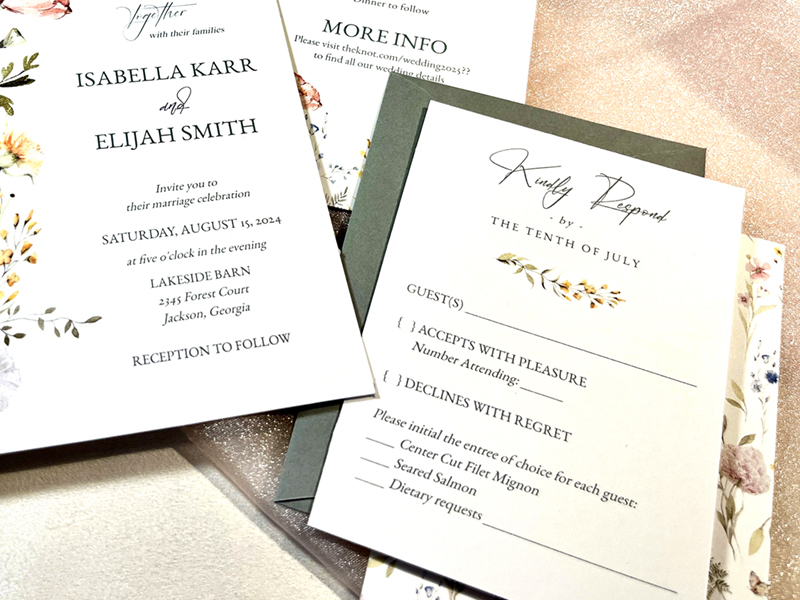 Together
with their families
ISABELLA KARR
and
ELIJAH SMITH
Invite you to
their marriage celebration
SATURDAY, AUGUST 15, 2024
at five o'clock in the evening
LAKESIDE BARN
2345 Forest Court
Jackson, Georgia
RECEPTION TO FOLLOW
Dinner to follow
MORE INFO
Please visit theknot.com/wedding2025??
to find all our wedding details
Kindly Respond
- by -
THE TENTH OF JULY
GUEST(S)
{ } ACCEPTS WITH PLEASURE
Number Attending:
{ } DECLINES WITH REGRET
Please initial the entree of choice for each guest:
Center Cut Filet Mignon
Seared Salmon
Dietary requests